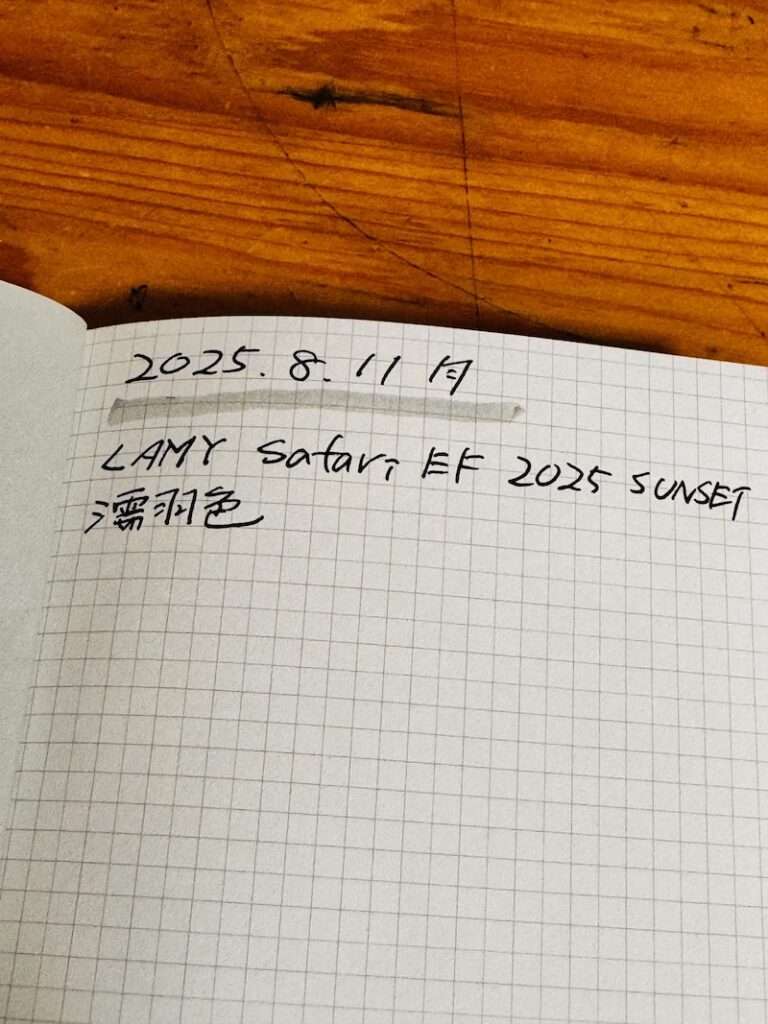 2025. 8. 11 月
LAMY Safari EF 2025 SUNSET
濡羽色